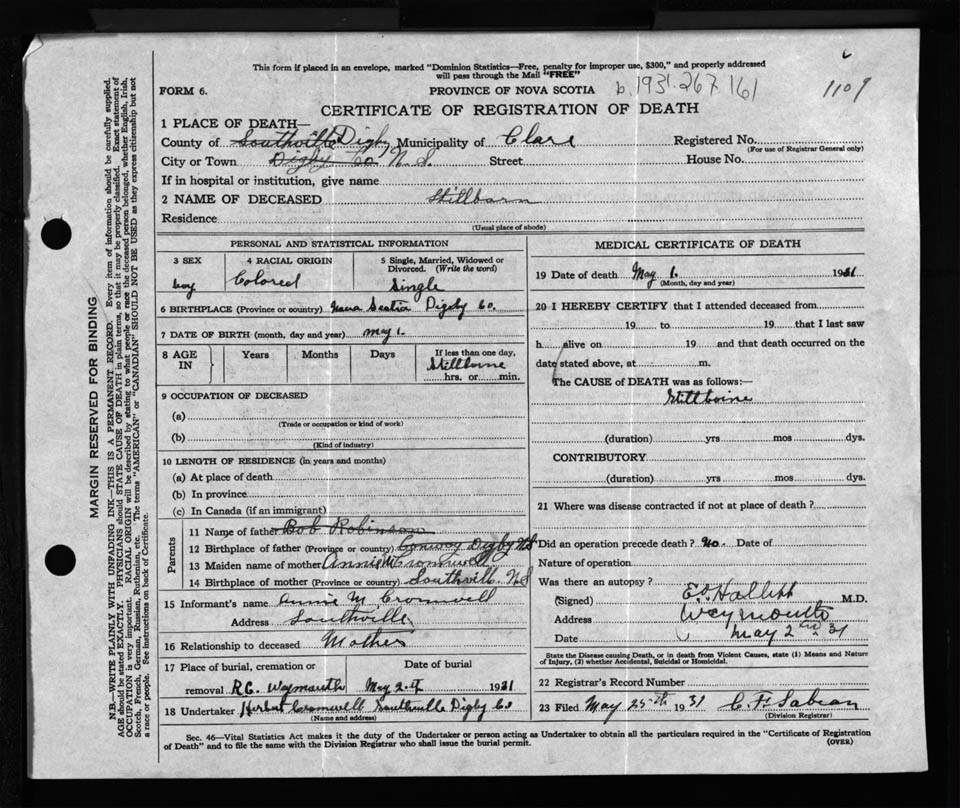 This form if placed in an envelope, marked "Dominion Statistics—Free, penalty for improper use, $300," and properly addressed
will pass through the Mail "FREE"
FORM 6.
PROVINCE OF NOVA SCOTIA
b.1931.267.161
1109
CERTIFICATE OF REGISTRATION OF DEATH
1 PLACE OF DEATH—
County of Southville Digby Municipality of Clare Registered No.
(For use of Registrar General only)
City or Town Digby Co. N.S. Street House No.
If in hospital or institution, give name
2 NAME OF DECEASED Stillbarn
Residence
(Usual place of abode)
PERSONAL AND STATISTICAL INFORMATION
3 SEX
boy
4 RACIAL ORIGIN
Colored
5 Single, Married, Widowed or
Divorced. (Write the word)
Single
6 BIRTHPLACE (Province or country) Nova Scotia Digby Co.
7 DATE OF BIRTH (month, day and year) May 1.
8 AGE
IN
Years
Months
Days
If less than one day,
Stillborne
hrs. or min.
9 OCCUPATION OF DECEASED
(a)
(Trade or occupation or kind of work)
(b)
(Kind of industry)
10 LENGTH OF RESIDENCE (in years and months)
(a) At place of death
(b) In province
(c) In Canada (if an immigrant)
Parents
11 Name of father Bob Robinson
12 Birthplace of father (Province or country) Conway Digby N.S
13 Maiden name of mother Annie M Cromwell
14 Birthplace of mother (Province or country) Southvill. N.S
15 Informant's name Annie M Cromwell
Address Southville
16 Relationship to deceased Mother
17 Place of burial, cremation or
removal R.C. Waymouth
Date of burial
May 2nd 1931
18 Undertaker Herbert Cromwell Southville Digby Co
(Name and address)
MEDICAL CERTIFICATE OF DEATH
19 Date of death May 1. 1931
(Month, day and year)
20 I HEREBY CERTIFY that I attended deceased from
19 to 19 that I last saw
h alive on 19 and that death occurred on the
date stated above, at m.
The CAUSE OF DEATH was as follows:—
Stillborne
(duration) yrs mos dys.
CONTRIBUTORY
(duration) yrs. mos. dys.
21 Where was disease contracted if not at place of death?
Did an operation precede death? No. Date of
Nature of operation
Was there an autopsy?
(Signed) M.D.
Address Weymouth
Date May 2nd 31
State the Disease causing Death, or in death from Violent Causes, state (1) Means and Nature
of Injury, (2) whether Accidental, Suicidal or Homicidal.
22 Registrar's Record Number
23 Filed May 25th 1931
(Division Registrar)
Sec. 46—Vital Statistics Act makes it the duty of the Undertaker or person acting as Undertaker to obtain all the particulars required in the "Certificate of Registration
of Death" and to file the same with the Division Registrar who shall issue the burial permit.
(OVER)
MARGIN RESERVED FOR BINDING
N.B.—WRITE PLAINLY WITH UNFADING INK—THIS IS A PERMANENT RECORD. Every item of information should be carefully supplied.
AGE should be stated EXACTLY. PHYSICIANS should STATE CAUSE OF DEATH in plain terms, so that it may be properly classified. Exact statement of
OCCUPATION is very important. RACIAL ORIGIN will be described by stating to what people or race the deceased person belonged, whether English, Irish,
Scotch, French, German, Russian, Ruthenian, etc. The terms "AMERICAN" or "CANADIAN" SHOULD NOT BE USED as they express citizenship but not
a race or people. See instructions on back of Certificate.